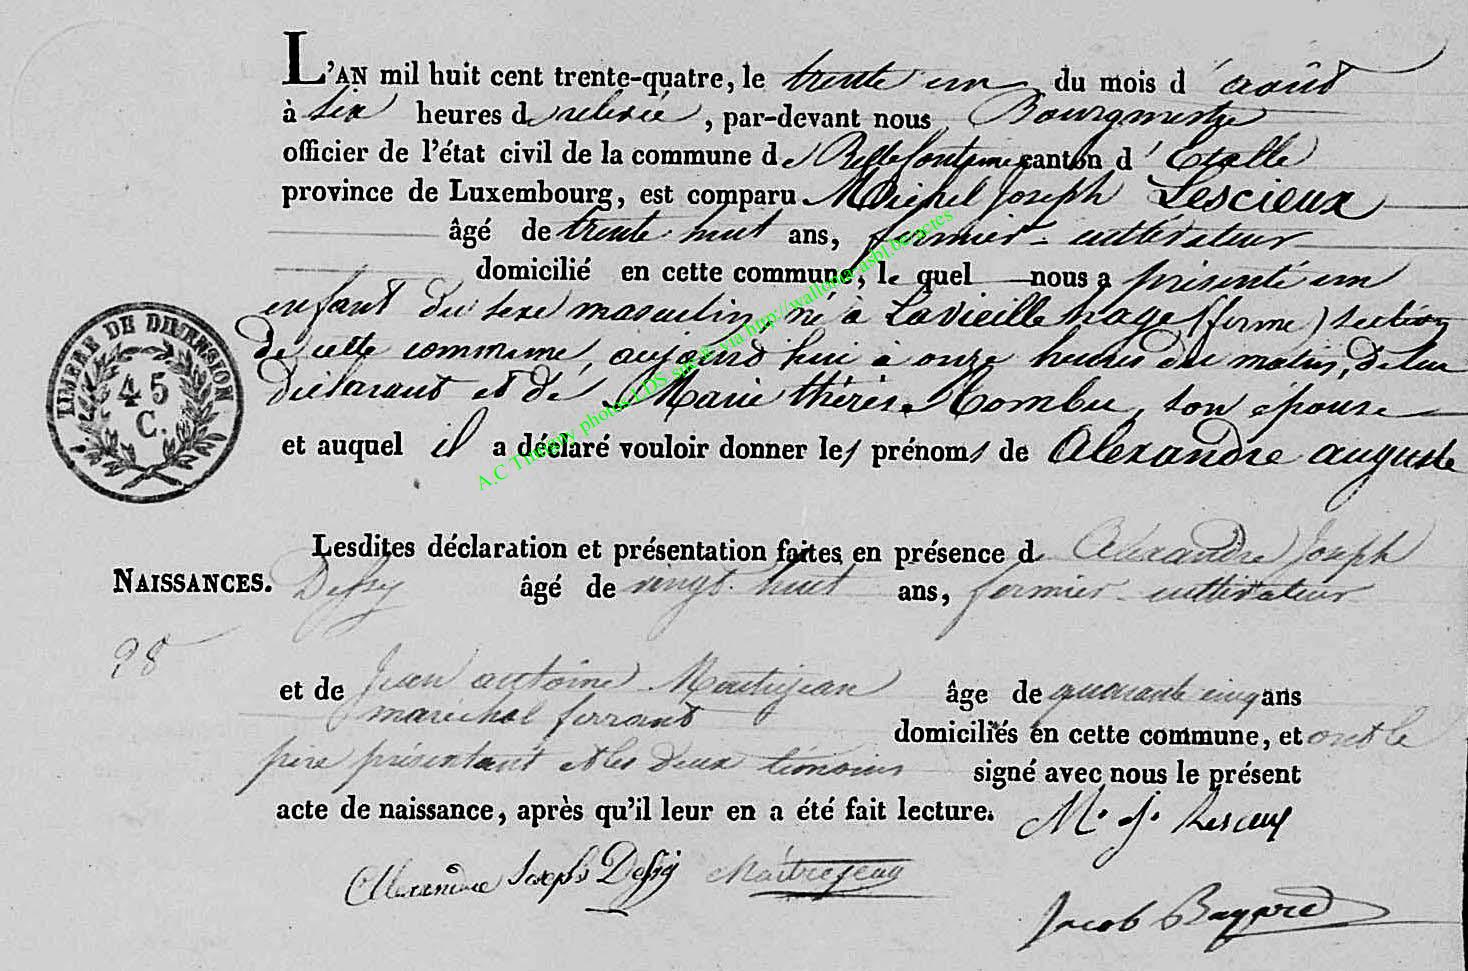 L'AN mil huit cent trente-quatre, le trente un du mois d'août
à six heures de relevée, par-devant nous Bourgmestre
officier de l'état civil de la commune de Bellefontaine canton d'Etalle
province de Luxembourg, est comparu Michel Joseph Lescieux
âgé de trente huit ans, fermier-cultivateur
domicilié en cette commune, le quel nous a présenté un
enfant du sexe masculin, né à Lavieille hage (ferme) section
de cette commune, aujourd'hui à onze heures du matin, de lui
déclarant et de Marie thérèse Combu, son épouse
et auquel il a déclaré vouloir donner les prénoms de Alexandre auguste
TIMBRE DE DIMENSION
45
C.
A.C Tintigny photos LDS sur F. via http://wallonia-asbl.be/actes
Lesdites déclaration et présentation faites en présence de Alexandre Joseph
NAISSANCES. Dessy âgé de vingt-huit ans, fermier-cultivateur
28
et de Jean antoine Maitrejean âge de quarante cinq ans
maréchal ferrant domiciliés en cette commune, et ont le
père présentant et les deux témoins signé avec nous le présent
acte de naissance, après qu'il leur en a été fait lecture. M. J. Lescieux
Alexandre Joseph Dessy Maitrejean
Jacob Bayard